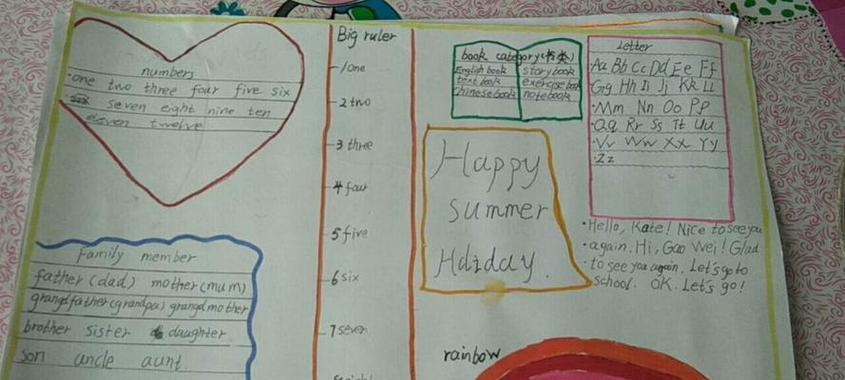 numbers
·one two three four five six
seven eight nine ten
eleven twelve
Family member
father (dad) mother (mum)
grangdfather (grandpa) grangdmother
brother sister daughter
son uncle aunt
Big ruler
1one
2two
3three
4four
5five
6six
7seven
book category(书类)
English book story book
text book exercise book
Chinese book note book
Happy
summer
Holiday.
Letter
Aa Bb Cc Dd Ee Ff
Gg Hh Ii Jj Kk Ll
·Mm Nn Oo Pp
·Qq Rr Ss Tt Uu
·Vv Ww Xx Yy
·Zz
·Hello, Kate! Nice to see you
·again. Hi, Gao Wei! Glad
·to see you again. Let's go to
school. OK. Let's go!
rainbow